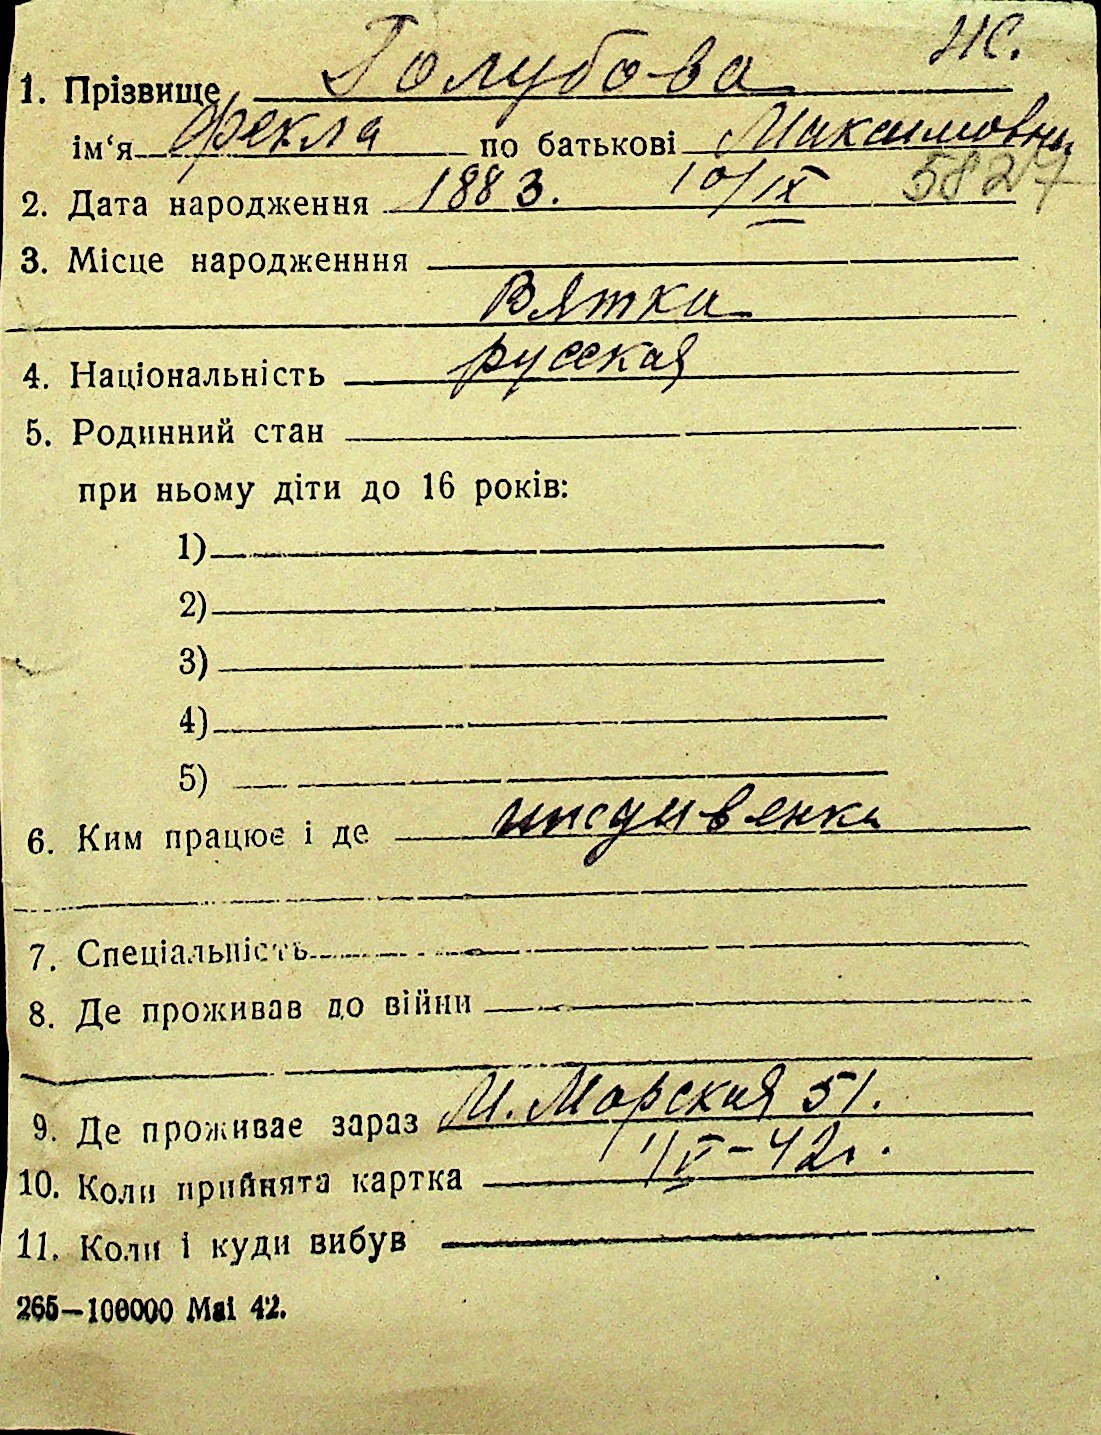 ж.
1. Прізвище Голубова
ім'я Фекла по батькові Максимовна
5827
2. Дата народження 1883. 10/IX
3. Місце народженння
Вятка
4. Національність русская
5. Родинний стан
при ньому діти до 16 років:
1)
2)
3)
4)
5)
6. Ким працює і де иждивенка
7. Спеціальність
8. Де проживав до війни
9. Де проживає зараз М. Морская 51.
10. Коли прийнята картка
11. Коли і куди вибув
265—100000 Mai 42.